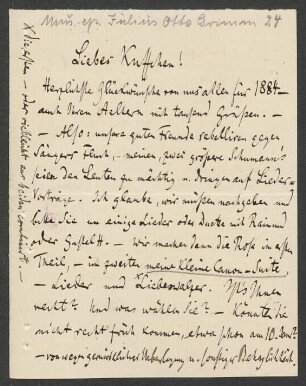 Mus. ep. Julius Otto Grimm 24
Liebes Kuffchen!
Herzlichste Glückwünsche von uns allen für 1884 –
auch Ihren Aeltern mit tausend Grüßen. –
– Also: unsere guten Freunde rebelliren gegen
Sängers Fluch, – meinen, zwei größere Schumann's
seien den Leuten zu mächtig u. dringen auf Lieder-
Vorträge. Ich glaube, wir müßen nachgeben und
bitte Sie um einige Lieder oder Duette mit Raimund
oder Gustel H. – wir machen dann die Rose im ersten
Theil, – im zweiten meine kleine Canon-Suite
– Lieder und Liebeswalzer. Ists Ihnen
recht? Und was wählen Sie? – Könnten Sie
nicht recht früh kommen, etwa schon am 10. Jan.?
– von wegen gemüthlicher Ueberlegung u. sonstiger Behaglichkeit.
X die ersten – oder vielleicht aus beiden combinirt. –